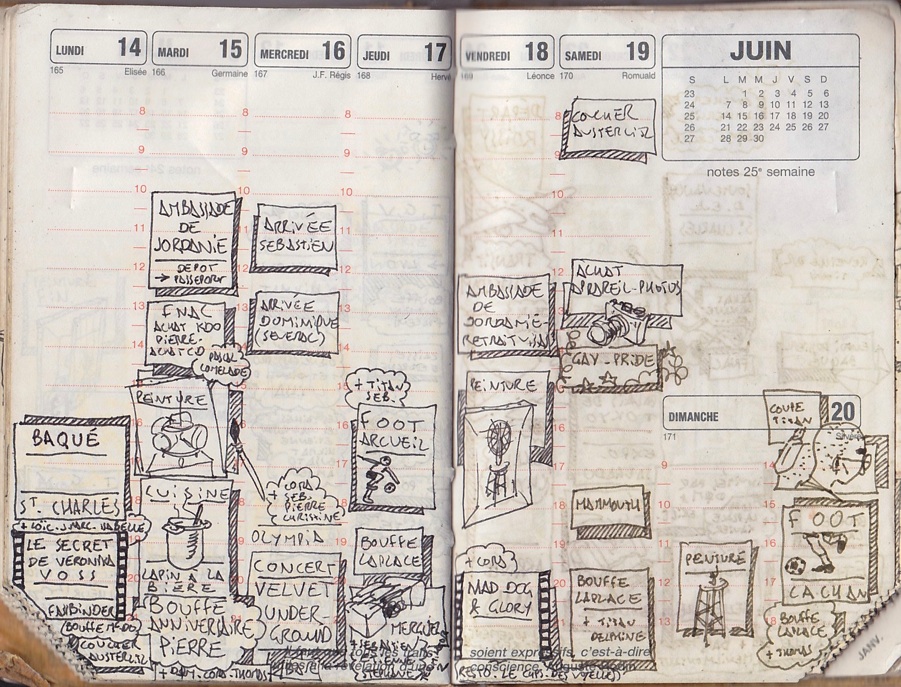 LUNDI 14
165 Elisée
BAQUÉ
ST. CHARLES
LE SECRET
DE VERONIKA
VOSS
FASSBINDER
COUCHER
AUSTERLITZ
MARDI 15
166 Germaine
AMBASSADE
DE
JORDANIE
DEPOT
→ PASSEPORT
FNAC
ACHAT KDO
PIERRE.
ACHAT CD
PASCAL
COMELADE
PEINTURE
CUISINE
LAPIN A LA
BIÈRE
BOUFFE
ANNIVERSAIRE
PIERRE
MERCREDI 16
167 J.F. Régis
ARRIVÉE
SEBASTIEN
ARRIVÉE
DOMINIQUE
(SEVERAC)
+ CORA
+ SEB.
PIERRE
CHRISTINE
OLYMPIA
CONCERT
VELVET
UNDER-
GROUND
JEUDI 17
168 Hervé
+ TITAN
SEB.
FOOT
ARCUEIL
BOUFFE
LAPLACE
MERGUEZ
VENDREDI 18
169 Léonce
AMBASSADE
DE
JORDANIE-
RETRAIT VISA
PEINTURE
+ CORA
MAD DOG
& GLORY
SAMEDI 19
170 Romuald
COUCHER
AUSTERLITZ
ACHAT
APPAREIL-PHOTOS
GAY-PRIDE
MAMMOUTH
BOUFFE
LAPLACE
+ TITAN
DELPHINE
soient expressifs, c'est-à-dire
JUIN
S L M M J V S D
23 1 2 3 4 5 6
24 7 8 9 10 11 12 13
25 14 15 16 17 18 19 20
26 21 22 23 24 25 26 27
27 28 29 30
notes 25e semaine
DIMANCHE 20
171
COUPE
TITAN
PEINTURE
FOOT
CACHAN
BOUFFE
LAPLACE
+ THOMAS
JANV.